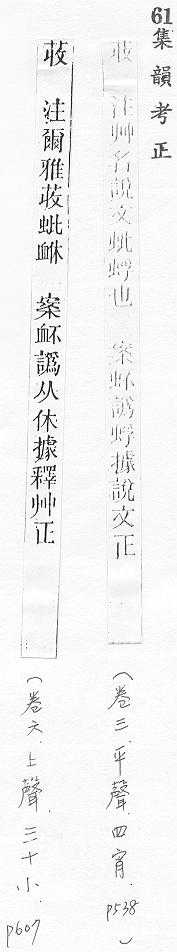 61集韻考正
荍 注艸名說文蚍蜉也 案虾譌蜉據說文正
（卷三．平聲．四宵．p538）
荍 注爾雅荍蚍衃 案衃譌从休據釋艸正
（卷六．上聲．三十小．p607